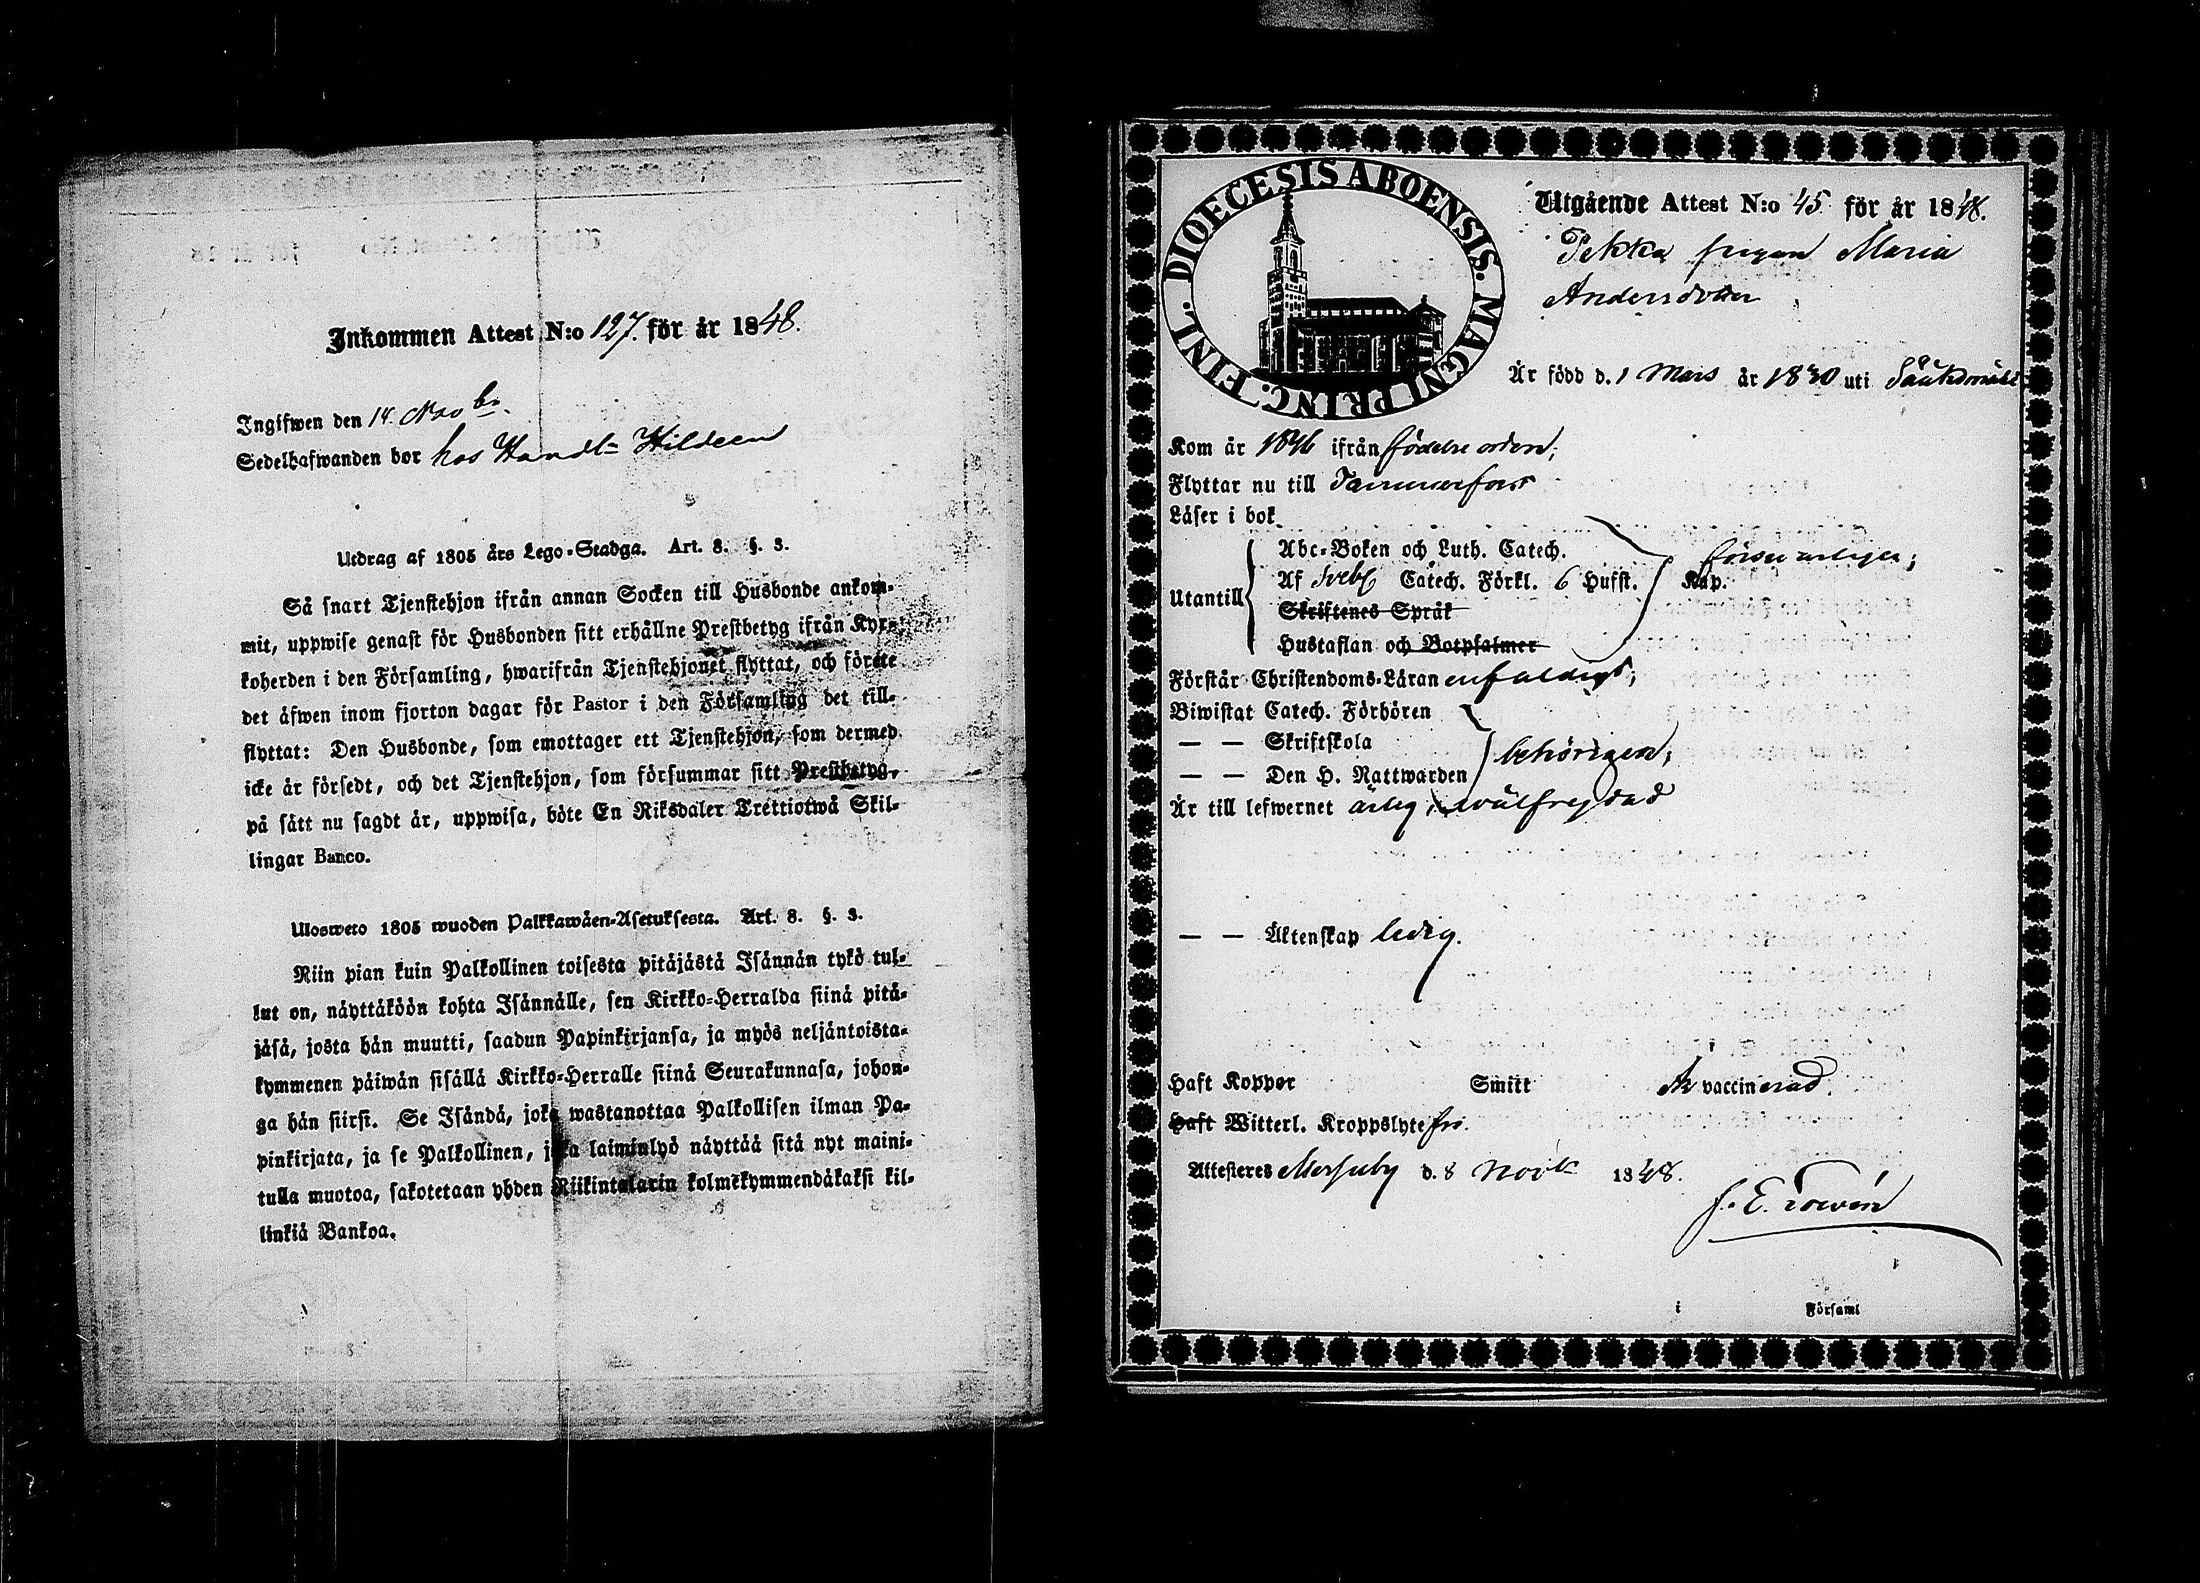 Inkommen Attest N:o 127. för år 1848.
Ingifwen den 14. Novbr.
Sedelhafwanden bor hos Handl. Hildeen
Utdrag af 1805 års Lego-Stadga. Art. 8. §. 3.
Så snart Tjenstehjon ifrån annan Socken till Husbonde ankom-
mit, uppwise genast för Husbonden sitt erhållne Prestbetyg ifrån Kyr-
koherden i den Församling, hwarifrån Tjenstehjonet flyttat, och förete
det äfwen inom fjorton dagar för Pastor i den Församling det till-
flyttat: Den Husbonde, som emottager ett Tjenstehjon, som dermed
icke är försedt, och det Tjenstehjon, som försummar sitt Prestbetyg,
på sätt nu sagdt är, uppwisa, böte En Riksdaler Trettiotwå Skil-
lingar Banco.
Ulosweto 1805 wuoden Palkkawäen-Asetuksesta. Art. 8. §. 3.
Niin pian kuin Palkollinen toisesta pitäjästä Isännän tykö tul-
lut on, näyttäköön kohta Isännälle, sen Kirkko-Herralda siinä pitä-
jäsä, josta hän muutti, saadun Papinkirjansa, ja myös neljäntoista-
kymmenen päiwän sisällä Kirkko-Herralle siinä Seurakunnasa, johon-
ga hän siirsi. Se Isändä, joka wastanottaa Palkollisen ilman Pa-
pinkirjata, ja se Palkollinen, joka laiminlyö näyttää sitä nyt maini-
tulla muotoa, sakotetaan yhden Riikintalarin kolmekymmendäkaksi kil-
linkiä Bankoa.
DIOECESIS ABOENSIS. MAGNI PRINC. FINL.
Utgående Attest N:o 45. för år 1848.
Pekka pigan Maria
Andersdotter
Är född d. 1 Mars år 1830 uti Sääksmäki
Kom år 1846 ifrån födelse orten;
Flyttar nu till Tammerfors
Läser i bok
Abc-Boken och Luth. Catech.
Af Sveb. Catech. Förkl. 6 Hufst. Kap. försvarligen;
Utantill
Skriftenes Språk
Hustaflan och Botpsalmer
Förstår Christendoms-Läran enfaldigt;
Biwistat Catech. Förhören
— — Skriftskola
behörigen;
— — Den H. Nattwarden
Är till lefwernet ärlig, wälfrejdad
— — Äktenskap ledig.
Haft Koppor Smitt Är vaccinerad.
Haft Witterl. Kroppslyte fri.
Attesteres Messuby d. 8 Novbr 1848.
i Församl